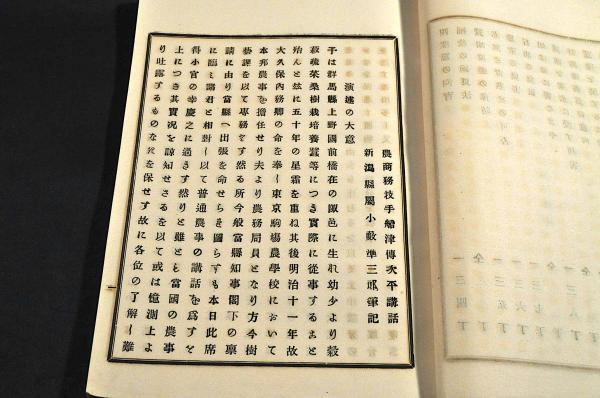 農商務技手船津傳次平講話
新潟縣屬小藪準三郎筆記
演述の大意
予は群馬縣上野國前橋在の僻邑に生れ幼少より穀
菽蔬菜桑樹栽培養蠶等につき實際に從事するこ
殆んと玆に五十年の星霜を重ね其後明治十一年故
大久保內務卿の命を奉し東京駒塲農學校において
本邦農事を擔任せり夫より農務局員となり方今樹
藝課を以て專務をす然る所今般當縣知事閣下の稟
請に由り當縣へ出張を命せらる圖らすも本日此席
に臨み諸君と相對し以て普通農事の講話を爲すを
得小官の幸慶之に過きす然りと雖とも當國の農事
上につき其實況を諒知せさるを以て或は憶測上よ
り吐露するものなきを保せす故に各位の了解し難